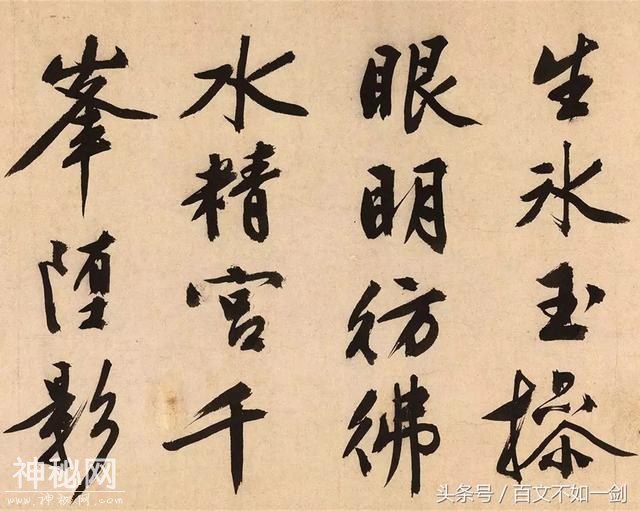 生氷玉操
眼明彷彿
水精宮千
峯堕影
神秘网
头条号 / 百文不如一剑